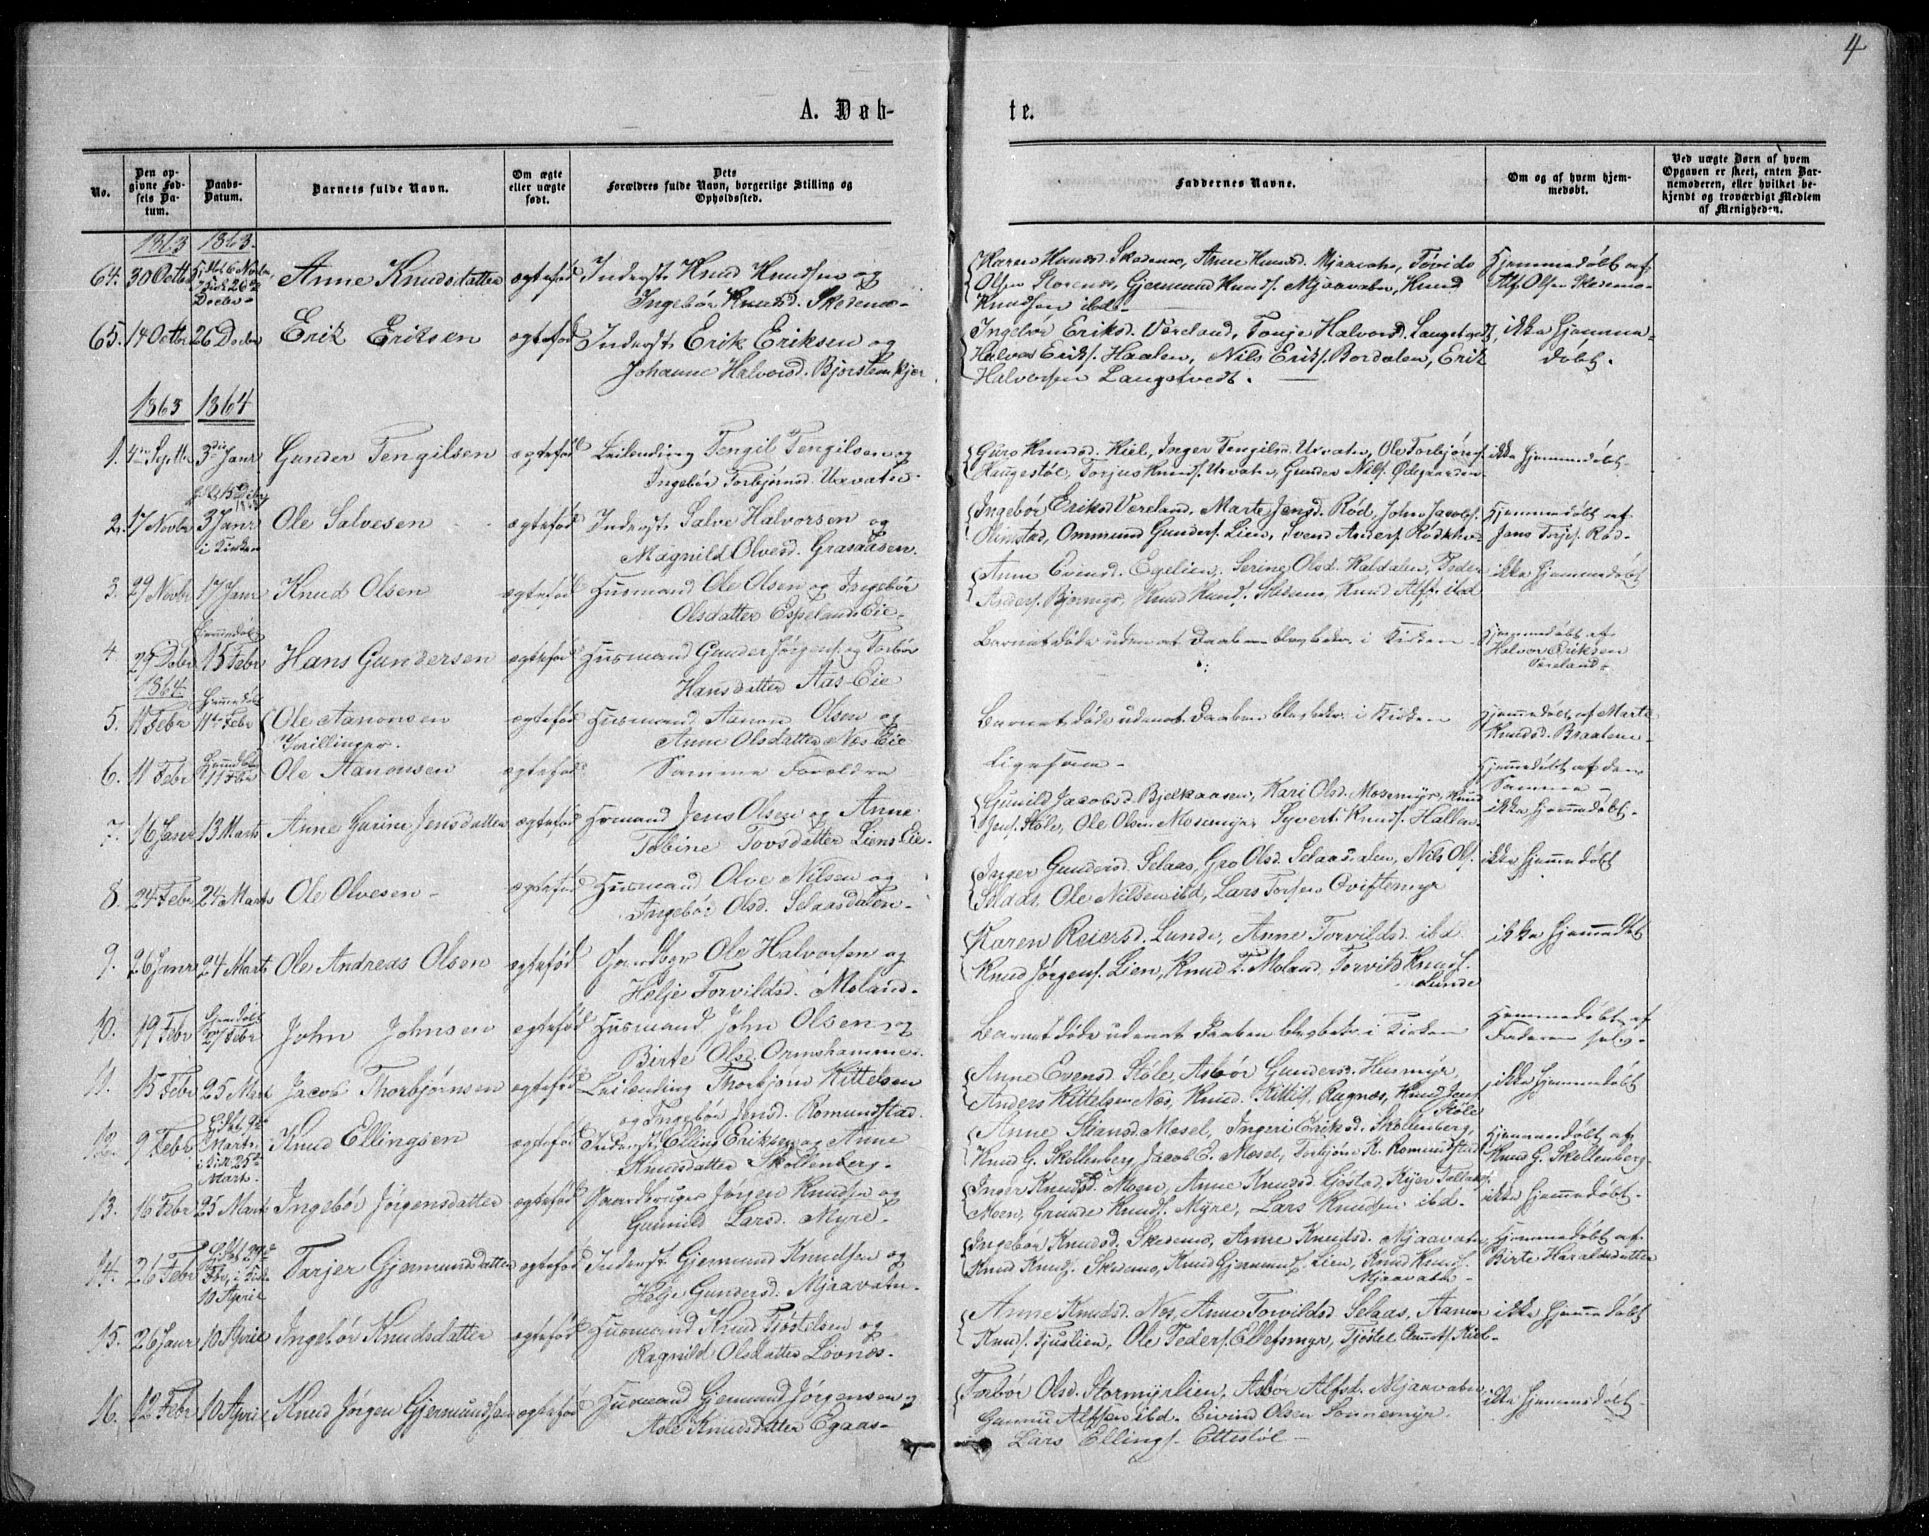 4
A. Døb-
te.
No.
Den op-
givne Fød-
sels Da-
tum.
Daabs-
Datum.
Barnets fulde Navn.
Om ægte
eller uægte
født.
Dets
Forældres fulde Navn, borgerlige Stilling og
Opholdssted.
Faddernes Navne.
Om og af hvem hjem-
medøbt.
Ved uægte Børn af hvem
Opgaven er skeet, enten Bar-
nemoderen, eller hvilket be-
kjendt og troværdigt Medlem
af Menigheden.
1863 1863.
64. 30 Octbr Anne Knudsdatter ægtefød Inderst Knud Knudsen og
Ingebør Knudsd. Skedsmo
Karen Knudsd. Skedsmo, Anne Knudsd. Mjaavatn,
Olsen Gjermund Knuds. Mjaavatn, Knud
Knudsen ibd
Hjemmedøbt af
Alf Olsen Skedsmo
65. 14 Octbr 26 Decbr Erik Eriksen ægtefød Inderst Erik Eriksen og
Johanne Halvorsd. Bjorstemkjer
Ingebør Eriksd. Vereland, Tonje Halvorsd. Langstvedt,
Halvor Eriks. Haalen, Nils Eriks. Bordalen, Erik
Halvorsen Langstvedt.
ikke hjemme-
døbt.
1863 1864
1. 4de Septbr 3die Janr Gunder Tengilsen ægtefød Leilending Tengil Tengilsen og
Ingebør Torbjørnsd. Urvatn
Guro Knudsd. Kiel, Inger Tengilsd. Urvatn, Ole Torbjørns.
Haugestøl, Torjus Knuds. Urvatn, Gunder Nils. Ødegaarden
ikke hjemmedøbt
2. 17 Novbr 3 Janr Ole Salvesen ægtefød Inderst Salve Halvorsen og
i Kirken Magnild Olvesd. Grasaasen.
Ingebør Eriksd. Vereland, Marte Jensd. Rød, John Jacobs.
Olimstad, Ommund Gunders. Lien, Svend Anders. Rødkho
Hjemmedøbt af
Jens Torjes. Rød
3. 29 Novbr 17 Janr Knud Olsen ægtefød Husmand Ole Olsen og Ingebør
Olsdatter Espelands Eie
Anne Evensd. Egelien, Serine Olsd. Kaldalen, Peder
Anders. Bjornmyr, Knud Knuds. Skedsmo, Knud Alfs. ibd
ikke hjemmedøbt
4. 29 Decbr 15 Febr Hans Gundersen ægtefød Husmand Gunder Jørgens. og Torbør
Hansdatter Aas Eie
Barnet døde uden at Daaben blev bekr. i Kirken
Hjemmedøbt af
Halvor Eriksen
Vereland
1864
5. 11 Febr 11te Febr Ole Aanonsen ægtefød Husmand Aanon Olsen og
Tvillinger. Anne Olsdatter Næs Eie
Barnet døde uden at Daaben blev bekr. i Kirken
Hjemmedøbt af Marte
Knudsd. Braaten
6. 11 Febr 11 Febr Ole Aanonsen ægtefød Samme Forældre
Ligesaa
Hjemmedøbt af den
Samme
7. 16 Janr 13 Marts Anne Gurine Jensdatter ægtefød Husmand Jens Olsen og Anne
Tobine Tovsdatter Liens Eie.
Gunild Jacobsd. Bjelkaasen, Kari Olsd. Mosemyr, Knud
Jens. Støle, Ole Olsen Mosemyr, Syvert Knuds. Hallen
ikke hjemmedøbt
8. 24 Febr 24 Marts Ole Olvesen ægtefød Husmand Olve Nilsen og
Ingebør Olsd. Selaasdalen
Inger Gundersd. Selaas, Gro Olsd. Selaasdalen, Nils Ols.
Selaas, Ole Nilsen ibd, Lars Torsen Qviftemyr
ikke hjemmedøbt
9. 26 Janr 24 Marts Ole Andreas Olsen ægtefød Gaardbr Ole Halvorsen og
Helje Torvildsd. Moland
Karen Reiersd. Lunde, Anne Torvildsd. ibd
Knud Jørgens. Lien, Knud T. Moland, Torvild Knuds.
Lunde
ikke hjemmedøbt
10. 19 Febr Febr John Johnsen ægtefød Husmand John Olsen og
Birte Olsd. Ormshammer.
Barnet døde uden at Daaben blev bekr. i Kirken
Hjemmedøbt af
Faderen selv
11. 15 Febr 25 Mart Jacob Thorbjørnsen ægtefød Leilending Thorbjørn Kittelsen
og Ingebør Jensd. Romundstad.
Anne Evensd. Støle, Asbør Gundersd. Husmyr,
Anders Kittelsen Næs, Knud Kittils. Ragnæs, Knud Jens.
Støle
ikke hjemmedøbt
12. 9 Febr Knud Ellingsen ægtefød Inderst Elling Eriksen og Anne
Knudsdatter Skollenberg
Anne Stiansd. Mesel, Ingeri Eriksd. Skollenberg,
Knud G. Skollenberg, Jacob E. Mesel, Torbjørn K. Romundstad
Hjemmedøbt af
Knud G. Skollenberg
13. 16 Febr 25 Mart Ingebør Jørgensdatter ægtefød Gaardbruger Jørgen Knudsen og
Gunnild Larsd. Myre
Inger Knudsd. Moen, Anne Knudsd. Gjøstad,
Moen, Grunde Knuds. Myre, Lars Knudsen ibd.
ikke hjemmedøbt
14. 26 Febr 10 April Tarjer Gjermundsdatter ægtefød Inderst Gjermund Knudsen og
Helje Gundersd. Mjaavatn
Ingebor Knudsd. Skedsmo, Anne Knudsd. Mjaavatn,
Knud Knuds. Skedsmo, Knud Gjermunds. Lien, Knud Knuds.
Mjaavatn
Hjemmedøbt af
Birte Haraldsdatter
15. 26 Janr 10 April Ingebør Knudsdatter ægtefød Husmand Knud Tjøstelsen og
Ragnild Olsdatter Løvnæs
Anne Knudsd. Næs, Anne Torvildsd. Selaas, Aanon
Knuds. Tjuslien, Ole Peders. Ellefsmyr, Tjøstel Knuts. Kiel
ikke hjemmedøbt
16. 12 Febr 10 April Knud Jørgen Gjermundsen ægtefød Husmand Gjermund Jørgensen og
Asle Knudsdatter Egaas
Torbør Olsd. Stormyrlien, Asbør Alfsd. Mjaavatn,
Gunnu Alfsen ibd. Eivind Olsen Sonnemyr.
Lars Ellings. Ettestøl
ikke hjemmedøbt